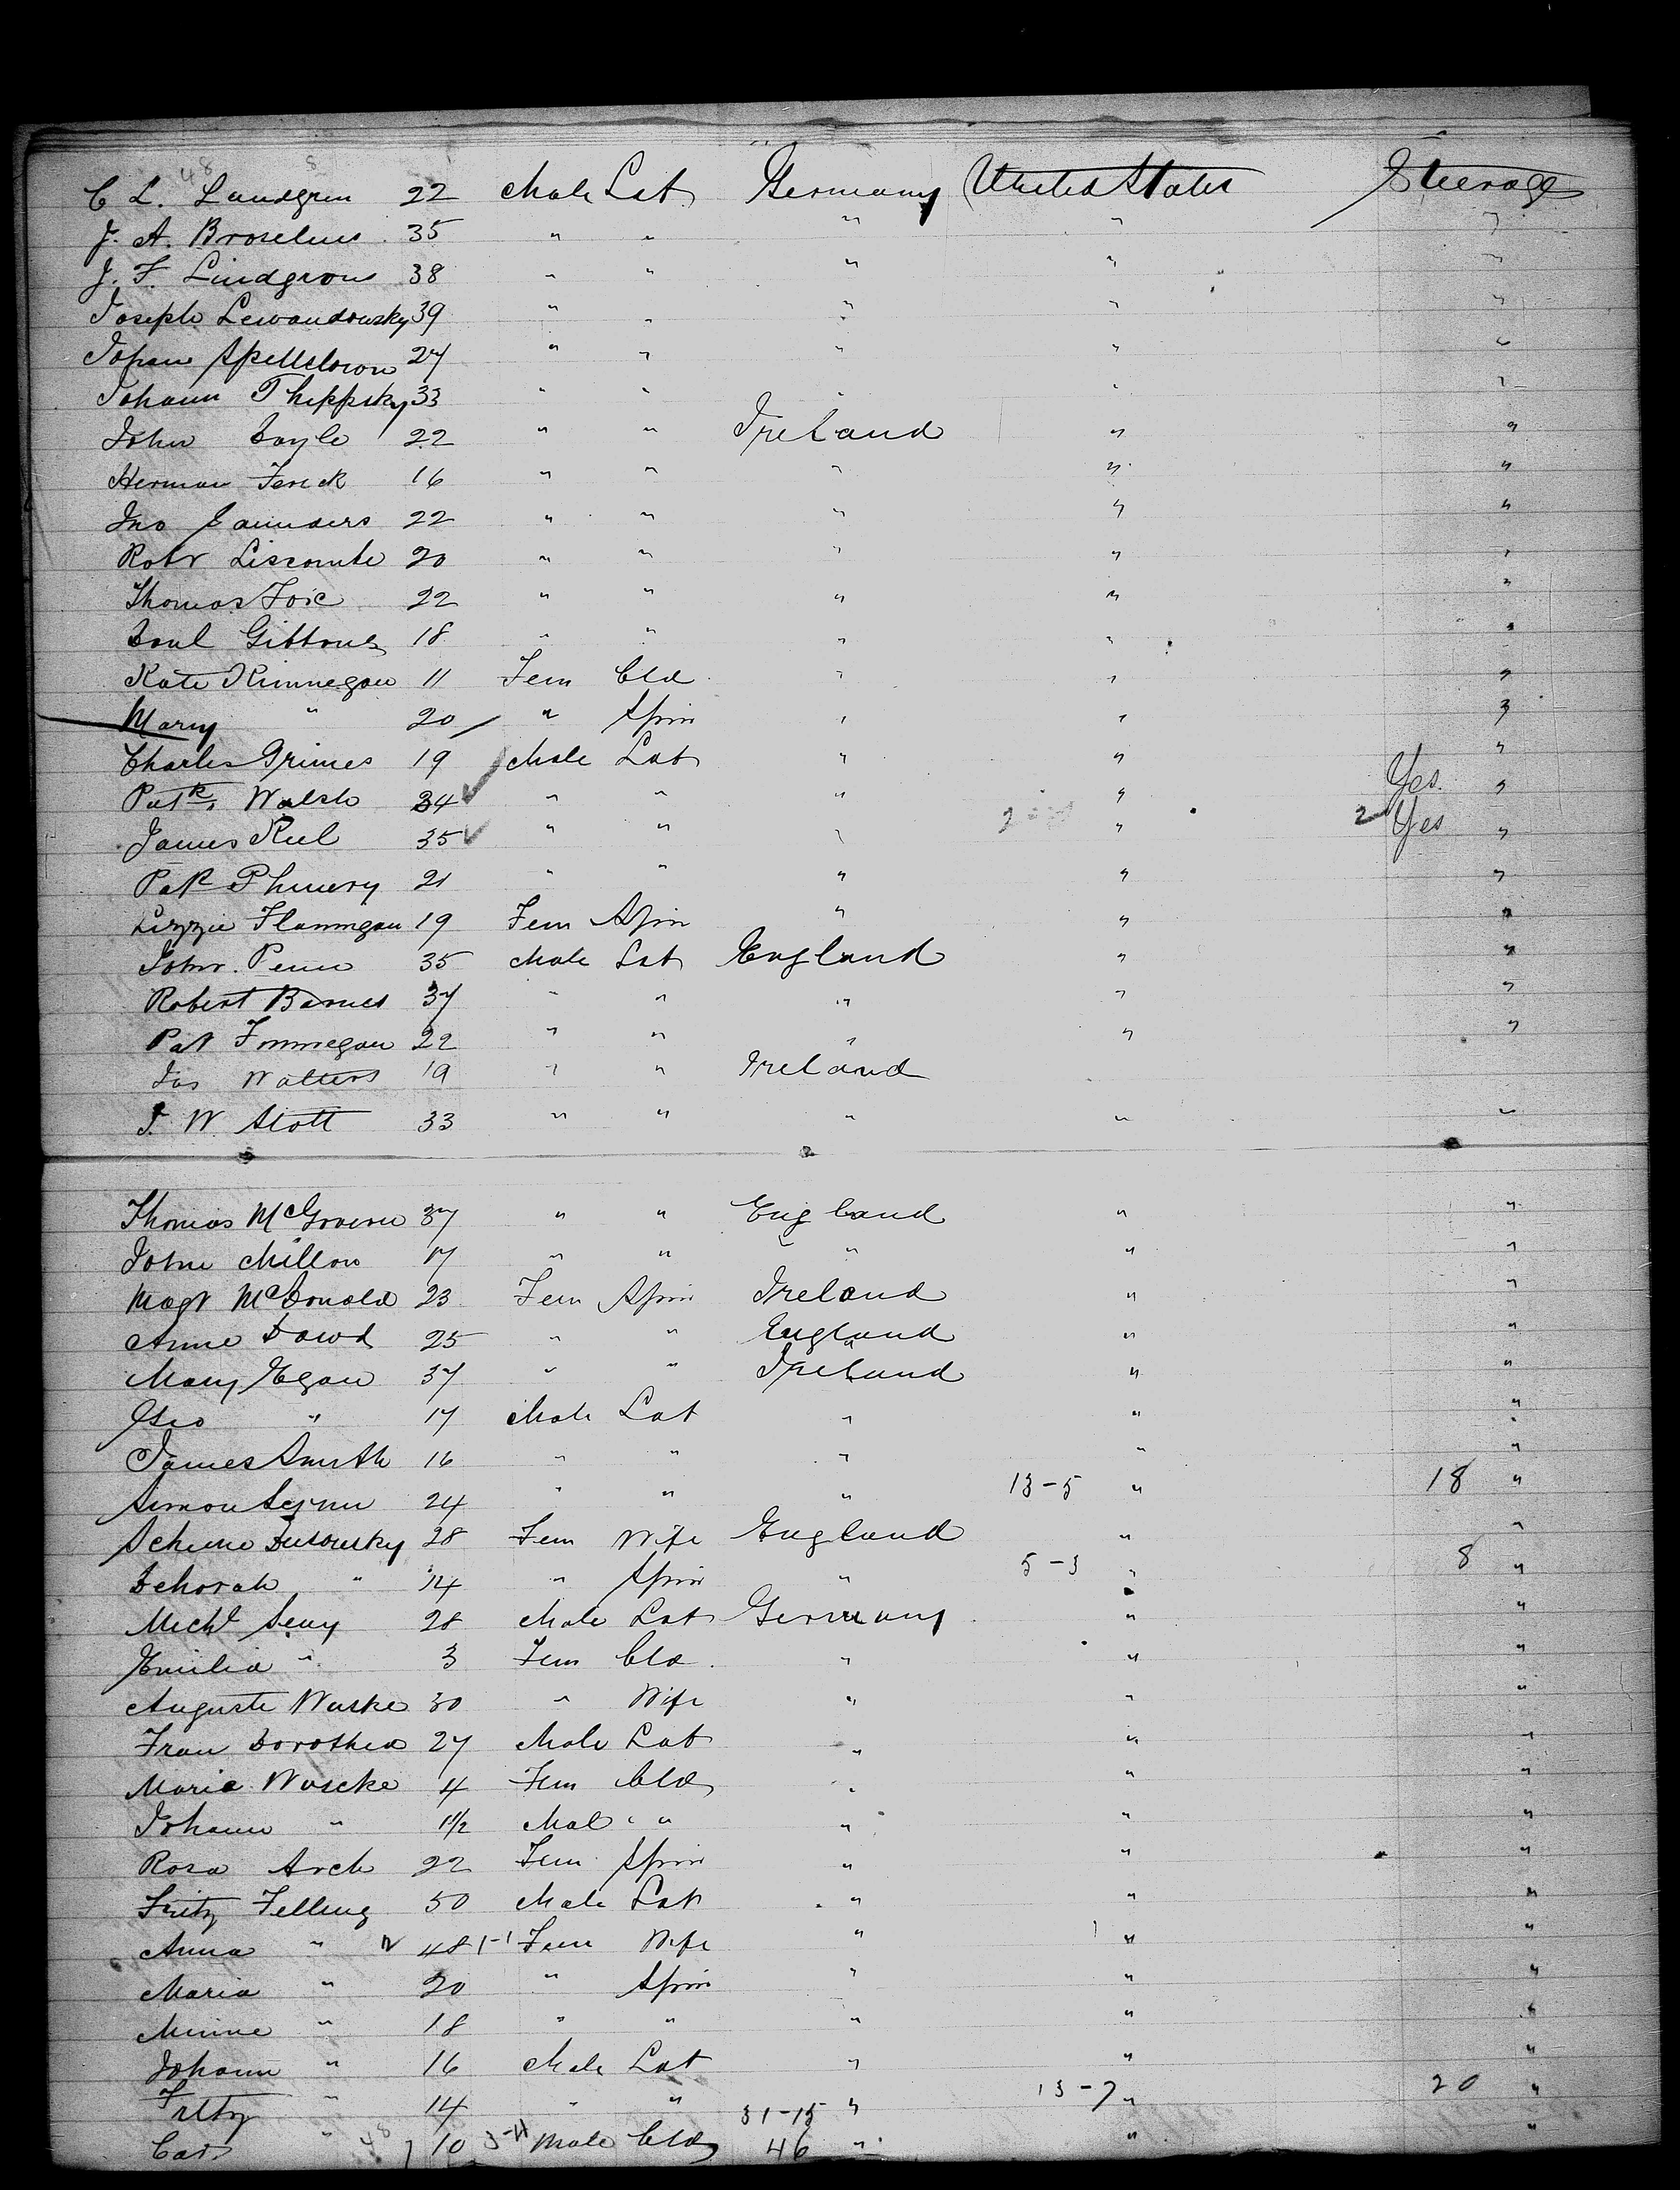 C L. Lundgren 22 Male Lab Germany United States Steerage
J. A. Broselius 35 " " " " "
J. F. Lindgron 38 " " " " "
Joseph Lewandowsky 39 " " " " "
Johan 27 " " " " "
Johann 33 " " " " "
John Doyle 22 " " Ireland " "
Herman 16 " " " " "
Jno Saunders 22 " " " " "
Robt Liscombe 20 " " " " "
Thomas 22 " " " " "
Danl Gibbons 18 " " " " "
Kate Kinnegan 11 Fem Cld " " "
Mary " 20 " Spin " " "
Charles Grimes 19 Male Lab " " "
Patk. Walsh 34 " " " " Yes. "
James 35 " " " " 2 Yes "
Pak 21 " " " " "
Lizzie Flannigan 19 Fem Spin " " "
John Penn 35 Male Lab England " "
Robert Barnes 37 " " " " "
Pat Finnegan 22 " " " " "
Jas Walters 19 " " Ireland
J. W Stott 33 " " " " "
Thomas McGovern 37 " " England " "
John Millon 17 " " " " "
Magt McDonald 23 Fem Spin Ireland " "
Anne Dowd 25 " " England " "
Mary Egan 37 " " Ireland " "
Geo " 17 Male Lab " " "
James Smith 16 " " " " "
Simon 24 " " " 13-5 " 18 "
28 Fem Wife England " "
Dehorah " 14 " Spin " 5-3 " 8 "
Michl 28 Male Lab Germany " "
Emilia " 3 Fem Cld " " "
Auguste Waske 30 " Wife " " "
Frau Dorothea 27 Male Lab " " "
Maria Wascke 4 Fem Cld " " "
Johann " 1 1/2 Mal " " " " "
Rosa Arch 22 Fem Spin " " "
Fritz Felling 50 Male Lab " " "
Anna " 48 1-1 Fem Wife " " "
Maria " 20 " Spin " " "
Minne " 18 " " " " "
Johann " 16 Male Lab " " "
Fritz " 14 " " 31-15 " 13-7 " 20 "
Carl " 10 3-11 Male Cld 46 " " "